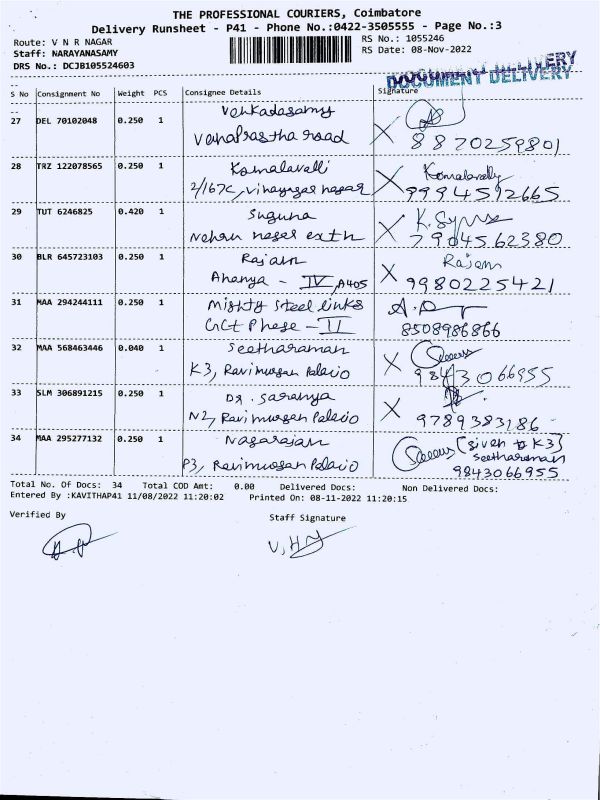 THE PROFESSIONAL COURIERS, Coimbatore
Delivery Runsheet - P41 - Phone No.:0422-3505555 - Page No.:3
Route: V N R NAGAR
RS No.: 1055246
Staff: NARAYANASAMY
RS Date: 08-Nov-2022
DRS No.: DCJB105524603
DOCUMENT DELIVERY
DOCUMENT DELIVERY
S No Consignment No Weight PCS Consignee Details Signature
Venkadasamy
27 DEL 70102048 0.250 1
Vanaprastha road 8870259801
28 TRZ 122078565 0.250 1 Komalavalli Komalavally
2/167C, Vinayagar nagar 9994592665
29 TUT 6246825 0.420 1 Suguna
Nehru nagar extn 7904562380
30 BLR 645723103 0.250 1 Rajam Rajam
Ananya - IV, A405 9980225421
31 MAA 294244111 0.250 1 Mighty Steel links
GCT Phase - II 8508986866
32 MAA 568463446 0.040 1 Seetharaman
K3, Ravimurgan Palacio 9843066955
33 SLM 306891215 0.250 1 Dr. Saranya
N2, Ravimurgan Palacio 9789383186
34 MAA 295277132 0.250 1 Nagarajan (given to K3)
Seetharaman
P3, Ravimurgan Palacio 9843066955
Total No. Of Docs: 34 Total COD Amt: 0.00 Delivered Docs: Non Delivered Docs:
Entered By :KAVITHAP41 11/08/2022 11:20:02 Printed On: 08-11-2022 11:20:15
Verified By
Staff Signature